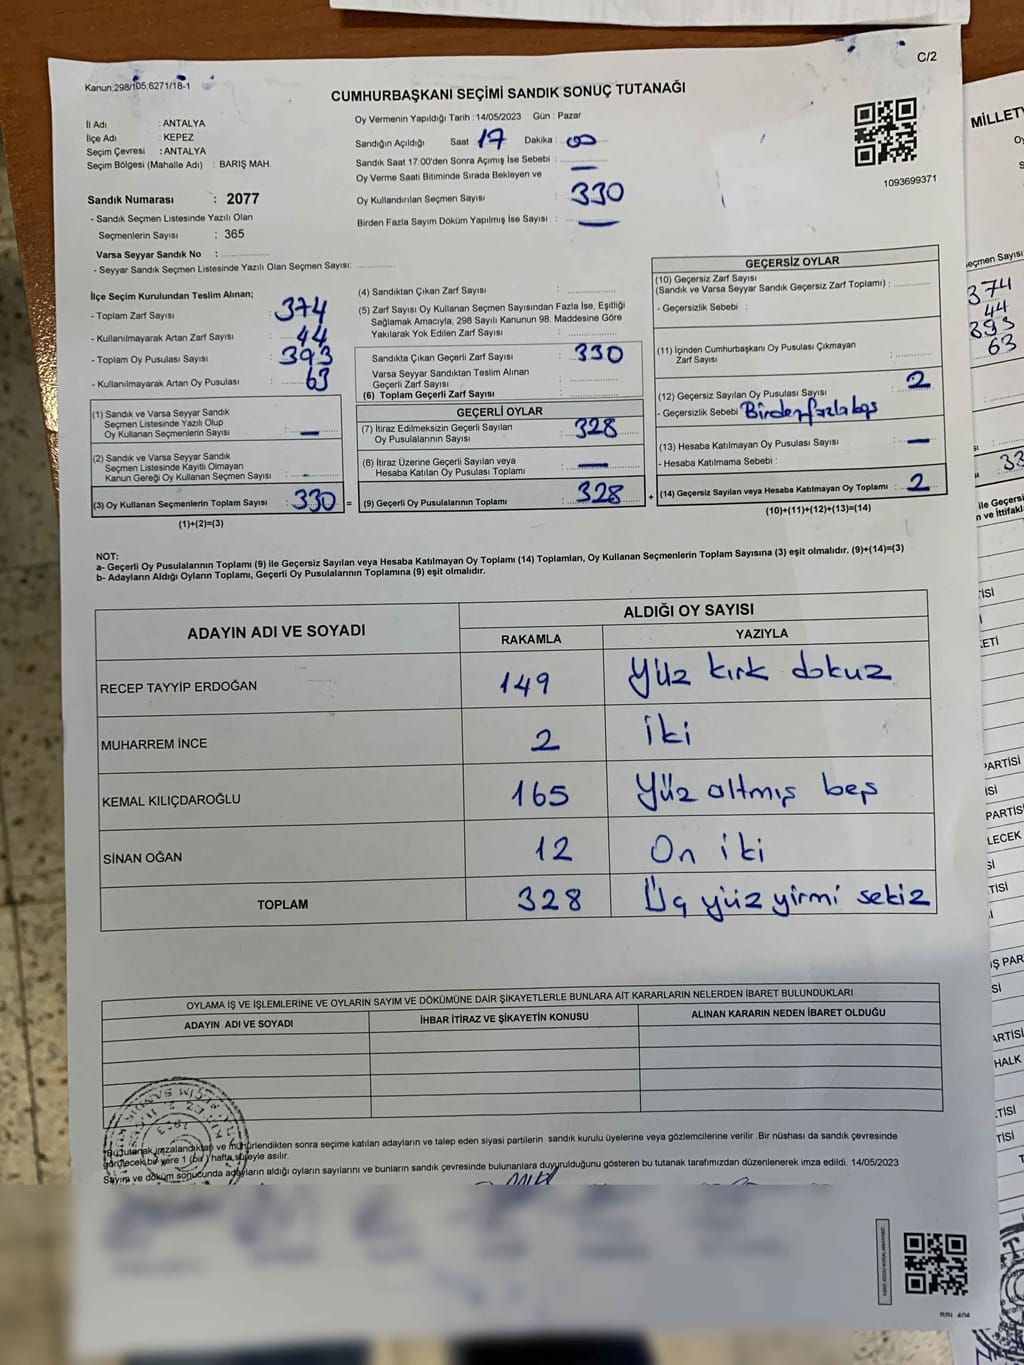 C/2
Kanun:298/105,6271/18-1
CUMHURBAŞKANI SEÇİMİ SANDIK SONUÇ TUTANAĞI
İl Adı : ANTALYA
İlçe Adı : KEPEZ
Seçim Çevresi : ANTALYA
Seçim Bölgesi (Mahalle Adı) : BARIŞ MAH.
Sandık Numarası : 2077
- Sandık Seçmen Listesinde Yazılı Olan
Seçmenlerin Sayısı : 365
Varsa Seyyar Sandık No : ..............
- Seyyar Sandık Seçmen Listesinde Yazılı Olan Seçmen Sayısı: ............
Oy Vermenin Yapıldığı Tarih : 14/05/2023 Gün : Pazar
Sandığın Açıldığı Saat : 17 Dakika : 00
Sandık Saat 17:00'den Sonra Açımış İse Sebebi : —
Oy Verme Saati Bitiminde Sırada Bekleyen ve
Oy Kullandırılan Seçmen Sayısı : 330
Birden Fazla Sayım Döküm Yapılmış İse Sayısı : —
1093699371
İlçe Seçim Kurulundan Teslim Alınan;
- Toplam Zarf Sayısı : 374
- Kullanılmayarak Artan Zarf Sayısı : 44
- Toplam Oy Pusulası Sayısı : 393
- Kullanılmayarak Artan Oy Pusulası : 63
(1) Sandık ve Varsa Seyyar Sandık
Seçmen Listesinde Yazılı Olup
Oy Kullanan Seçmenlerin Sayısı : —
(2) Sandık ve Varsa Seyyar Sandık
Seçmen Listesinde Kayıtlı Olmayan
Kanun Gereği Oy Kullanan Seçmen Sayısı : -
(3) Oy Kullanan Seçmenlerin Toplam Sayısı : 330 =
(1)+(2)=(3)
(4) Sandıktan Çıkan Zarf Sayısı : ..............
(5) Zarf Sayısı Oy Kullanan Seçmen Sayısından Fazla İse, Eşitliği
Sağlamak Amacıyla; 298 Sayılı Kanunun 98. Maddesine Göre
Yakılarak Yok Edilen Zarf Sayısı : ..............
Sandıkta Çıkan Geçerli Zarf Sayısı : 330
Varsa Seyyar Sandıktan Teslim Alınan
Geçerli Zarf Sayısı : ..............
(6) Toplam Geçerli Zarf Sayısı : ..............
GEÇERLİ OYLAR
(7) İtiraz Edilmeksizin Geçerli Sayılan
Oy Pusulalarının Sayısı : 328
(8) İtiraz Üzerine Geçerli Sayılan veya
Hesaba Katılan Oy Pusulası Toplamı : —
(9) Geçerli Oy Pusulalarının Toplamı : 328 +
GEÇERSİZ OYLAR
(10) Geçersiz Zarf Sayısı
(Sandık ve Varsa Seyyar Sandık Geçersiz Zarf Toplamı) : ............
- Geçersizlik Sebebi :
(11) İçinden Cumhurbaşkanı Oy Pusulası Çıkmayan
Zarf Sayısı : ............
(12) Geçersiz Sayılan Oy Pusulası Sayısı : 2
- Geçersizlik Sebebi
(13) Hesaba Katılmayan Oy Pusulası Sayısı : —
- Hesaba Katılmama Sebebi :
(14) Geçersiz Sayılan veya Hesaba Katılmayan Oy Toplamı : 2
(10)+(11)+(12)+(13)=(14)
NOT:
a- Geçerli Oy Pusulalarının Toplamı (9) ile Geçersiz Sayılan veya Hesaba Katılmayan Oy Toplamı (14) Toplamları, Oy Kullanan Seçmenlerin Toplam Sayısına (3) eşit olmalıdır. (9)+(14)=(3)
b- Adayların Aldığı Oyların Toplamı, Geçerli Oy Pusulalarının Toplamına (9) eşit olmalıdır.
ADAYIN ADI VE SOYADI
ALDIĞI OY SAYISI
RAKAMLA YAZIYLA
RECEP TAYYİP ERDOĞAN 149 Yüz kırk dokuz
MUHARREM İNCE 2 iki
KEMAL KILIÇDAROĞLU 165 Yüz altmış beş
SİNAN OĞAN 12 On iki
TOPLAM 328 Üç yüz yirmi sekiz
OYLAMA İŞ VE İŞLEMLERİNE VE OYLARIN SAYIM VE DÖKÜMÜNE DAİR ŞİKAYETLERLE BUNLARA AİT KARARLARIN NELERDEN İBARET BULUNDUKLARI
ADAYIN ADI VE SOYADI İHBAR İTİRAZ VE ŞİKAYETİN KONUSU ALINAN KARARIN NEDEN İBARET OLDUĞU
*Bu tutanak imzalandıktan ve mühürlendikten sonra seçime katılan adayların ve talep eden siyasi partilerin sandık kurulu üyelerine veya gözlemcilerine verilir. Bir nüshası da sandık çevresinde
görülecek bir yere 1 (bir) hafta süreyle asılır.
Sayım ve döküm sonucunda adayların aldığı oyların sayılarını ve bunların sandık çevresinde bulunanlara duyurulduğunu gösteren bu tutanak tarafımızdan düzenlenerek imza edildi. 14/05/2023
MİLLETV
eçmen Sayısı
374
44
393
63